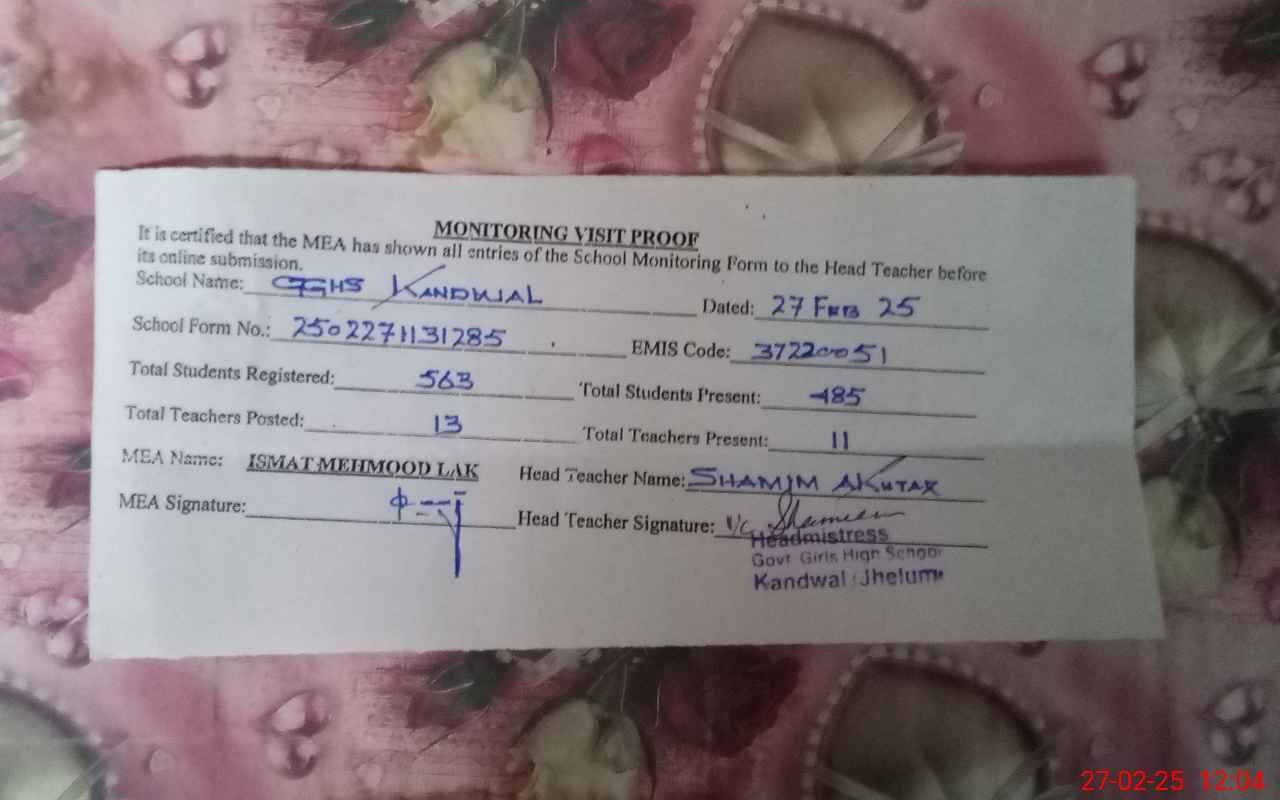 MONITORING VISIT PROOF
It is certified that the MEA has shown all entries of the School Monitoring Form to the Head Teacher before
its online submission.
School Name: GGHS KANDWAL Dated: 27 FEB 25
School Form No.: 2502271131285 EMIS Code: 37220051
Total Students Registered: 563 Total Students Present: 485
Total Teachers Posted: 13 Total Teachers Present: 11
MEA Name: ISMAT MEHMOOD LAK Head Teacher Name: SHAMIM AKHTAR
MEA Signature: Head Teacher Signature: I/C Shamim
Headmistress
Govt Girls High School
Kandwal Jhelum
27-02-25 12:04